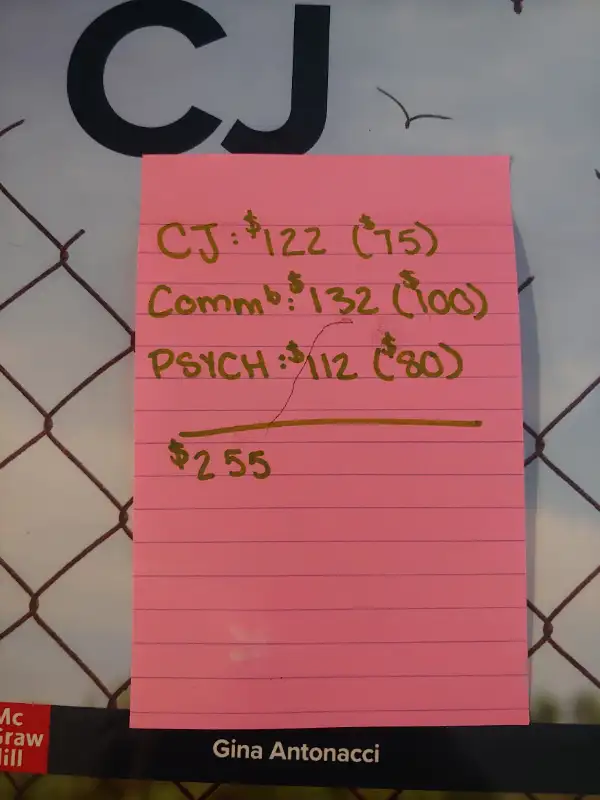 CJ
CJ: $122 ($75)
Commᵇ: $132 ($100)
PSYCH: $112 ($80)
$255
Mc
Graw
Hill
Gina Antonacci